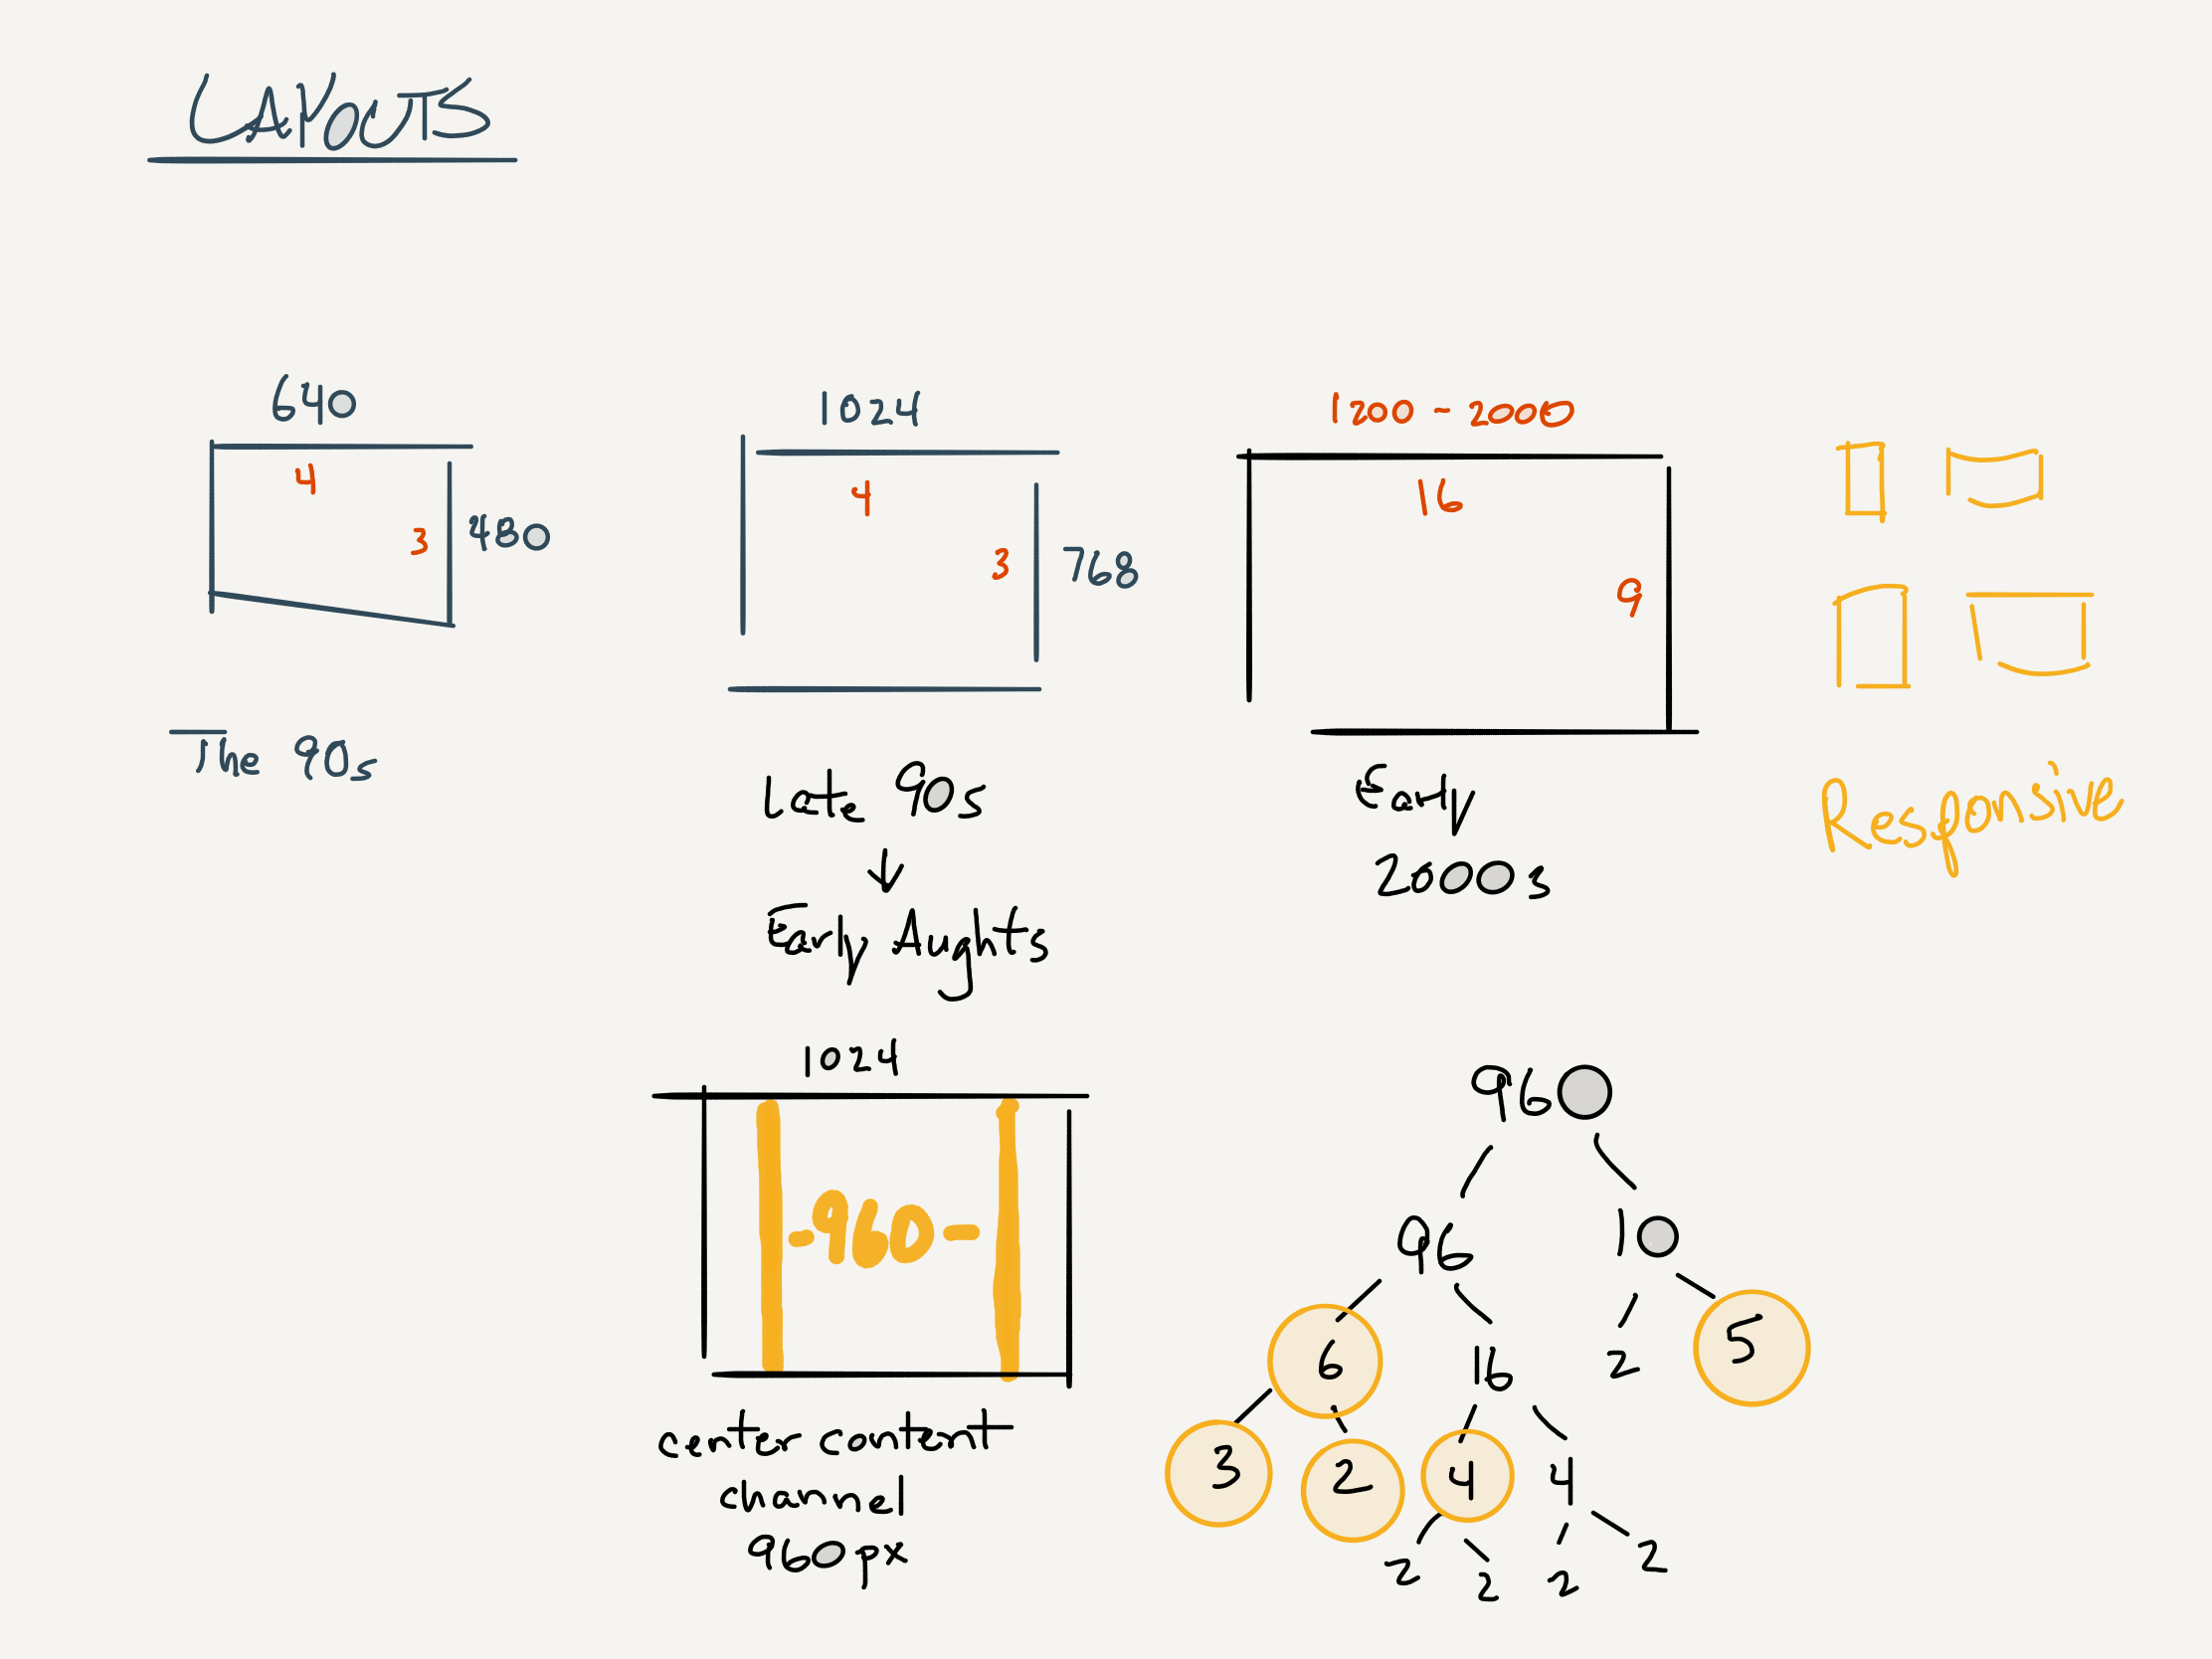 LAYOUTS
640
4
3
480
The 90s
1024
4
3
768
Late 90s
↓
Early Aughts
1200 - 2000
16
9
Early
2000s
Responsive
1024
- 960 -
center content
channel
960px
960
96 10
6 16 2 5
3 2 4 4
2 2 2 2